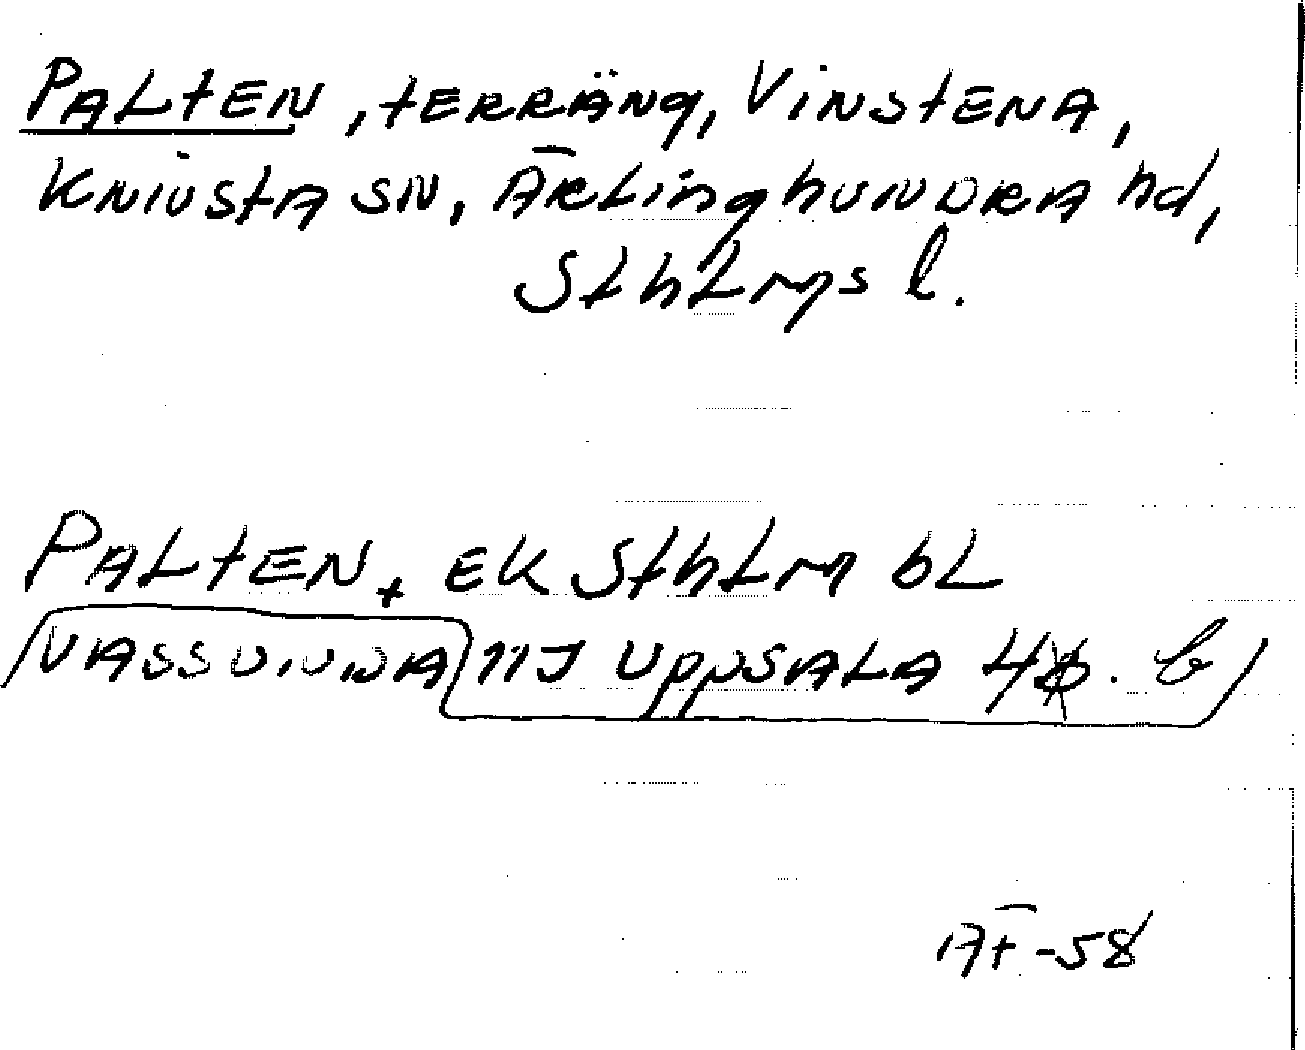 PALTEN, TERRÄNG, VINSTENA,
KNIVSTA SN, ÄRLINGHUNDRA hd,
Sthlms l.
PALTEN, EK Sthlm bl
VASSUNDA 11J UPPSALA
ÄT-58